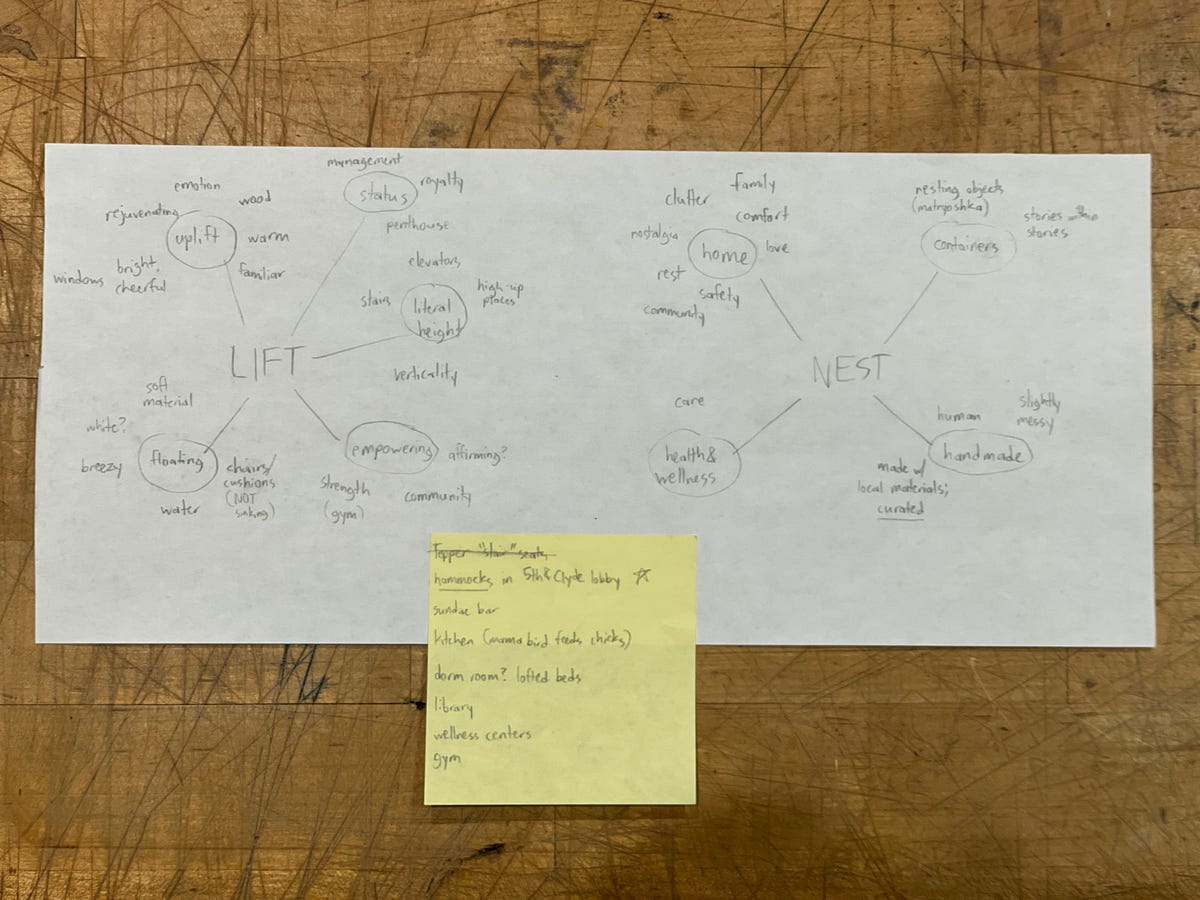 LIFT
uplift
emotion
wood
rejuvenating
warm
familiar
bright,
cheerful
windows
status
management
royalty
penthouse
literal
height
elevators
stairs
high-up
places
verticality
floating
soft
material
white?
breezy
water
chairs/
cushions
(NOT
sinking)
empowering
affirming?
strength
(gym)
community
NEST
home
clutter
family
comfort
nostalgia
love
rest
safety
community
containers
nesting objects
(matryoshka)
stories
stories
health &
wellness
care
handmade
human
slightly
messy
made w/
local materials;
curated
Tepper "stair" seats
hammocks in 5th & Clyde lobby ☆
sundae bar
kitchen (mama bird feeds chicks)
dorm room? lofted beds
library
wellness centers
gym